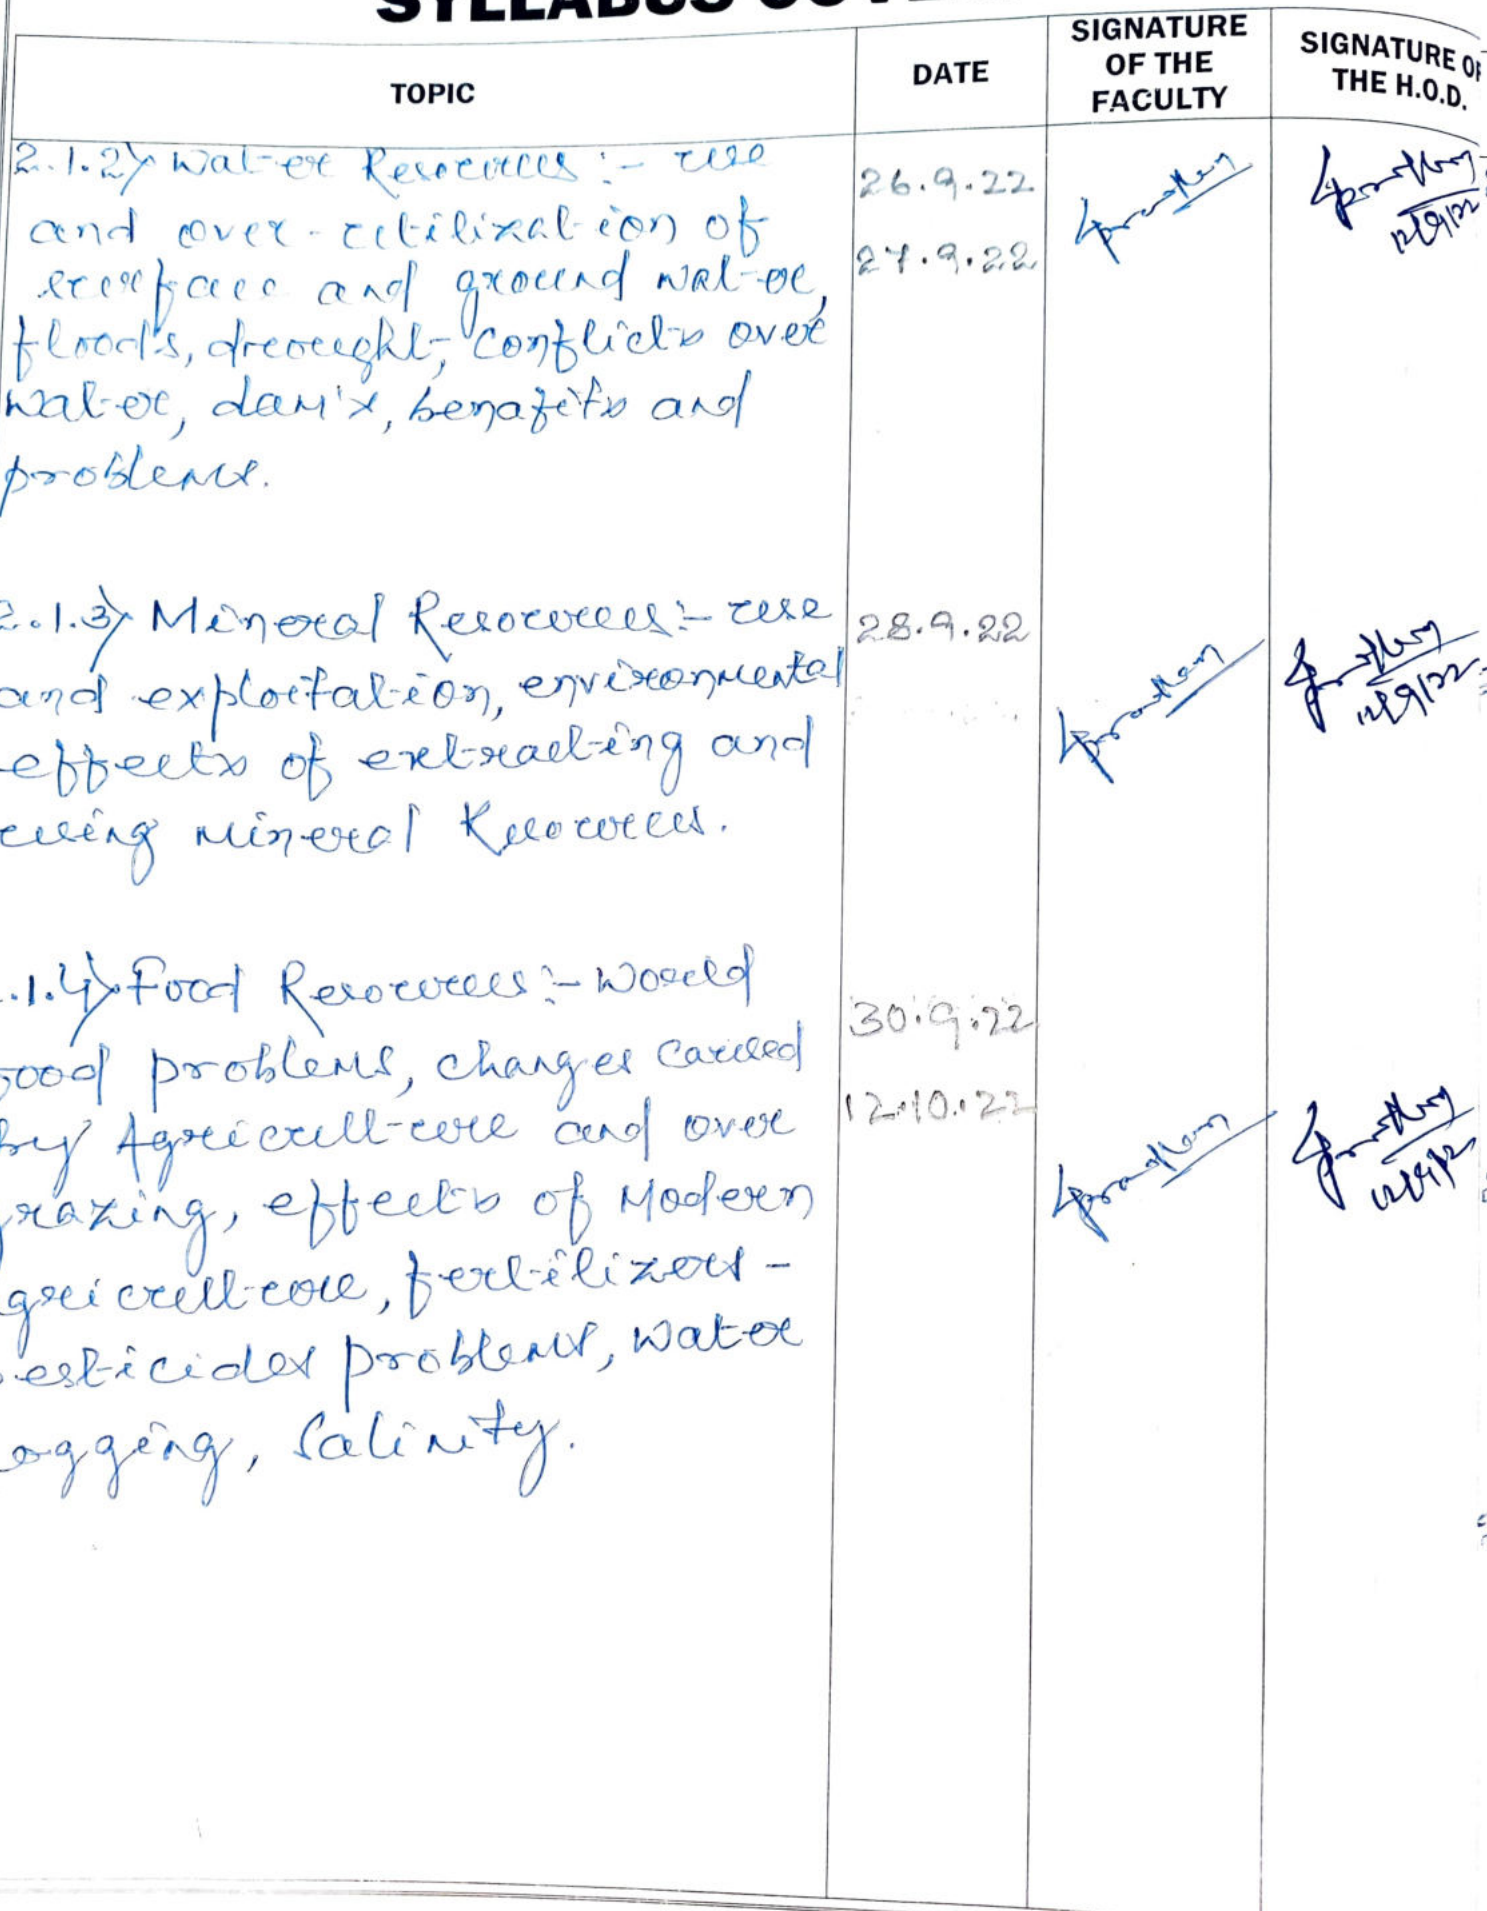 SYLLABUS
TOPIC
DATE
SIGNATURE
OF THE
FACULTY
SIGNATURE OF
THE H.O.D.
2.1.2) Water Resources :- use
and over-utilization of
surface and ground water,
floods, drought, conflicts over
water, dam's, benafits and
problems.
26.9.22
27.9.22
2.1.3) Mineral Resources :- use
and exploitation, environmental
effects of extracting and
using mineral Resources.
28.9.22
.1.4) Food Resources :- World
food problems, changes caused
by Agriculture and over
grazing, effects of Modern
agriculture, fertilizers -
pesticides problems, water
logging, Salinity.
30.9.22
12.10.22